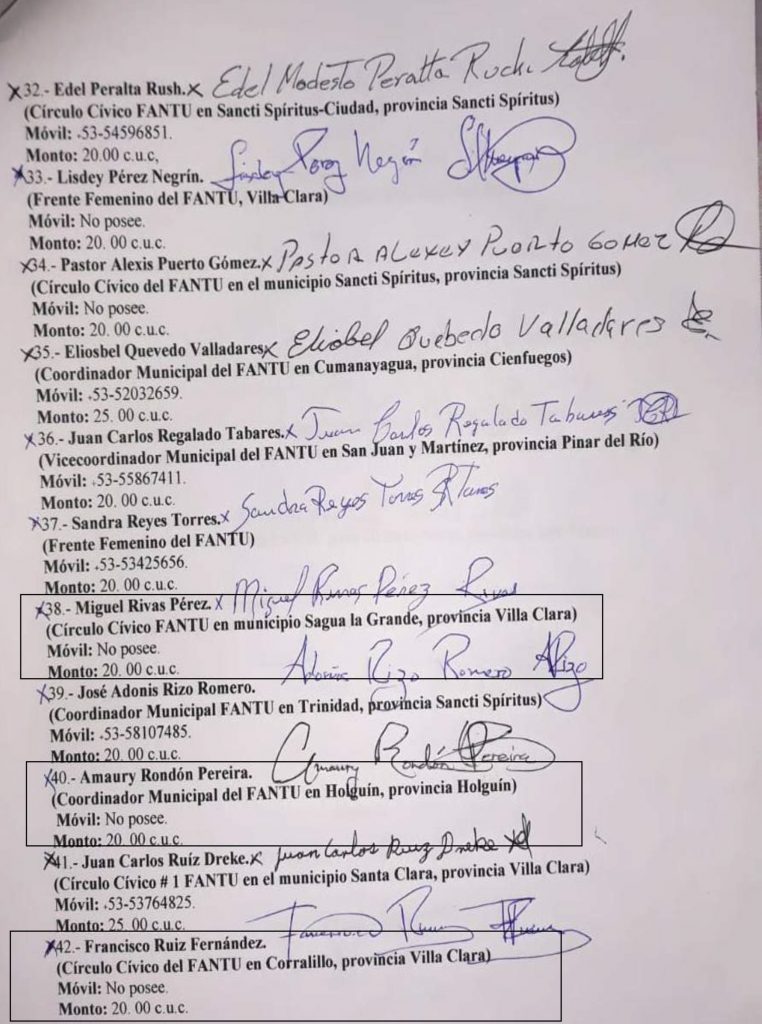 x32.- Edel Peralta Rush.x Edel Modesto Peralta Ruchi
(Círculo Cívico FANTU en Sancti Spíritus-Ciudad, provincia Sancti Spíritus)
Móvil: +53-54596851.
Monto: 20.00 c.u.c,
x33.- Lisdey Pérez Negrín. Lisdey Perez Negrín
(Frente Femenino del FANTU, Villa Clara)
Móvil: No posee.
Monto: 20. 00 c.u.c.
x34.- Pastor Alexis Puerto Gómez.x PASTOR ALEXEY PUORTO GOMEZ
(Círculo Cívico del FANTU en el municipio Sancti Spíritus, provincia Sancti Spíritus)
Móvil: No posee.
Monto: 20. 00 c.u.c.
x35.- Eliosbel Quevedo Valladaresx Eliobel Quebedo Valladares
(Coordinador Municipal del FANTU en Cumanayagua, provincia Cienfuegos)
Móvil: +53-52032659.
Monto: 25. 00 c.u.c.
x36.- Juan Carlos Regalado Tabares.x Juan Carlos Regalado Tabares
(Vicecoordinador Municipal del FANTU en San Juan y Martínez, provincia Pinar del Río)
Móvil: +53-55867411.
Monto: 20. 00 c.u.c.
x37.- Sandra Reyes Torres.x Sandra Reyes Torres
(Frente Femenino del FANTU)
Móvil: +53-53425656.
Monto: 20. 00 c.u.c.
x38.- Miguel Rivas Pérez.x Miguel Rivas Pérez Rivas
(Círculo Cívico FANTU en municipio Sagua la Grande, provincia Villa Clara)
Móvil: No posee.
Monto: 20. 00 c.u.c. Adonis Rizo Romero ARizo
x39.- José Adonis Rizo Romero.
(Coordinador Municipal FANTU en Trinidad, provincia Sancti Spíritus)
Móvil: +53-58107485.
Monto: 20. 00 c.u.c. Amaury Rondón Pereira
x40.- Amaury Rondón Pereira.
(Coordinador Municipal del FANTU en Holguín, provincia Holguín)
Móvil: No posee.
Monto: 20. 00 c.u.c.
x41.- Juan Carlos Ruíz Dreke.x Juan Carlos Ruiz Dreke
(Círculo Cívico # 1 FANTU en el municipio Santa Clara, provincia Villa Clara)
Móvil: +53-53764825.
Monto: 25. 00 c.u.c.
x42.- Francisco Ruiz Fernández.
(Círculo Cívico del FANTU en Corralillo, provincia Villa Clara)
Móvil: No posee.
Monto: 20. 00 c.u.c.